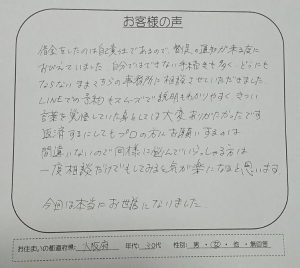 お客様の声
借金をしたのは自己責任であるので、督促の通知が来る度に
おびえていました。自分ではできない手続きも多く、どうにも
ならないままこちらの事務所に相談させていただきました。
LINEでの予約もスムーズで説明もわかりやすく、きつい
言葉を覚悟していた身としては大変ありがたかったです。
返済するにしてもプロの方にお願いするのは
間違いないので同様に悩んでいらっしゃる方は
一度相談だけでもしてみると気が楽になると思います
今回は本当にお世話になりました
お住まいの都道府県: 大阪府 年代: 30代 性別: 男・女・他・無回答